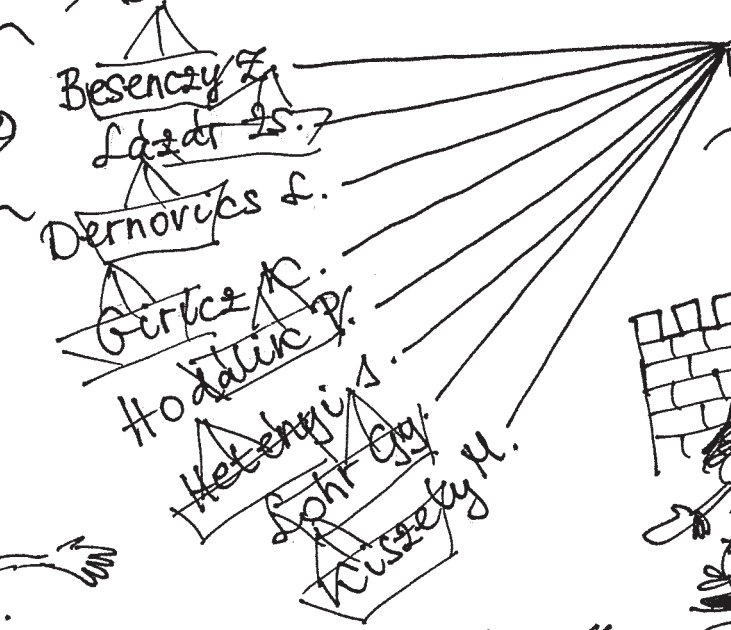 Besenczy Z.
Lázár Zs.
Dernovics L.
Giricz K.
Hodálik P.
Hetényi S.
Lohr Gy.
Kiszely M.